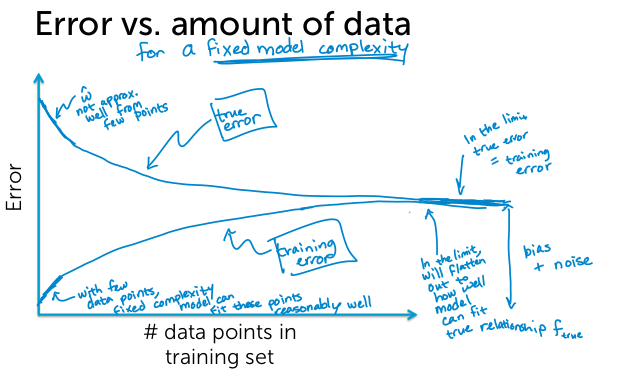 Error vs. amount of data
for a fixed model complexity
ŵ
not approx.
well from
few points
true
error
In the limit,
true error
= training
error
Error
training
error
with few
data points,
fixed complexity
model can
fit these points
reasonably well
In the limit,
will flatten
out to
how well
model
can fit
true relationship f_true
bias
+ noise
# data points in
training set